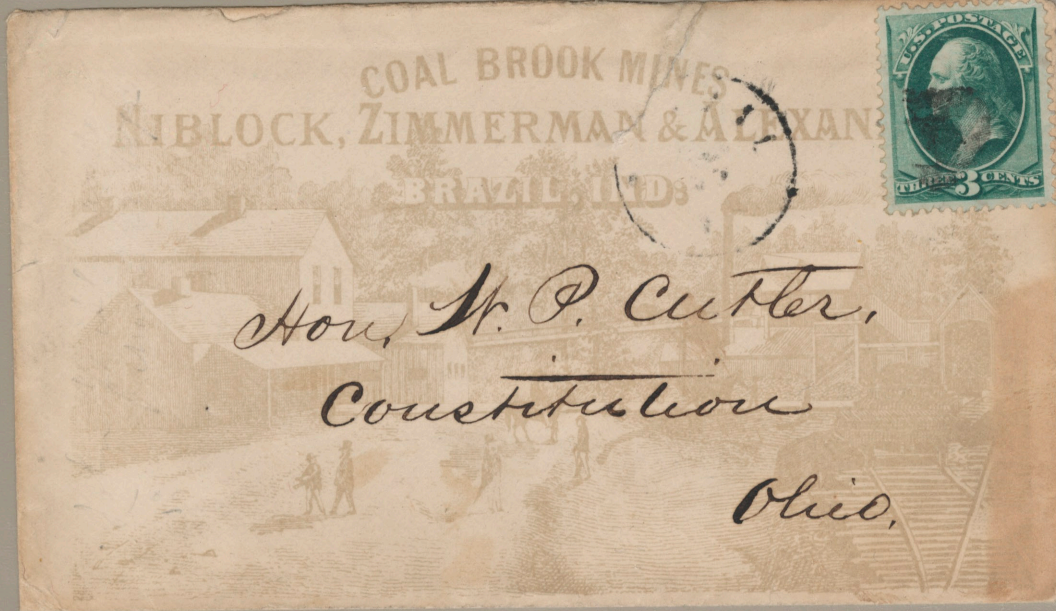 COAL BROOK MINES
NIBLOCK, ZIMMERMAN & ALEXAN
BRAZIL, IND.
U.S. POSTAGE
THREE 3 CENTS
Hon. W. P. Cutler,
Constitution
Ohio.